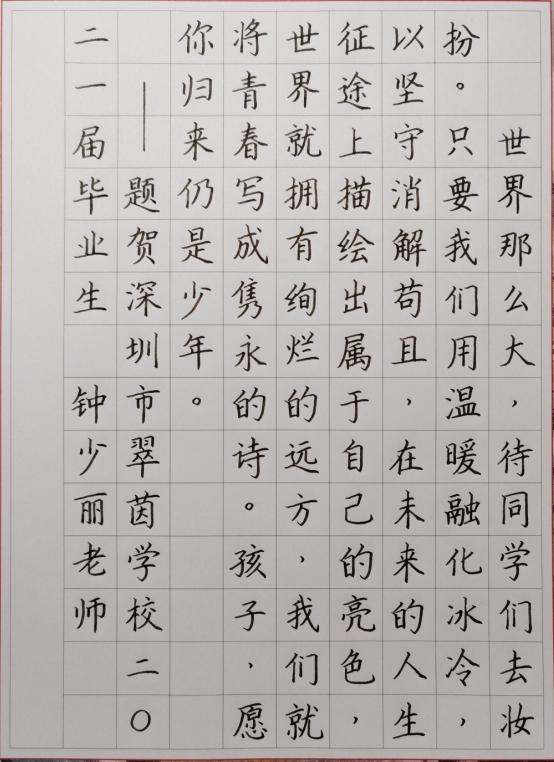 世界那么大，待同学们去妆
扮。只要我们用温暖融化冰冷，
以坚守消解苟且，在未来的人生
征途上描绘出属于自己的亮色，
世界就拥有绚烂的远方，我们就
将青春写成隽永的诗。孩子，愿
你归来仍是少年。
——题贺深圳市翠茵学校二〇
二一届毕业生 钟少丽老师